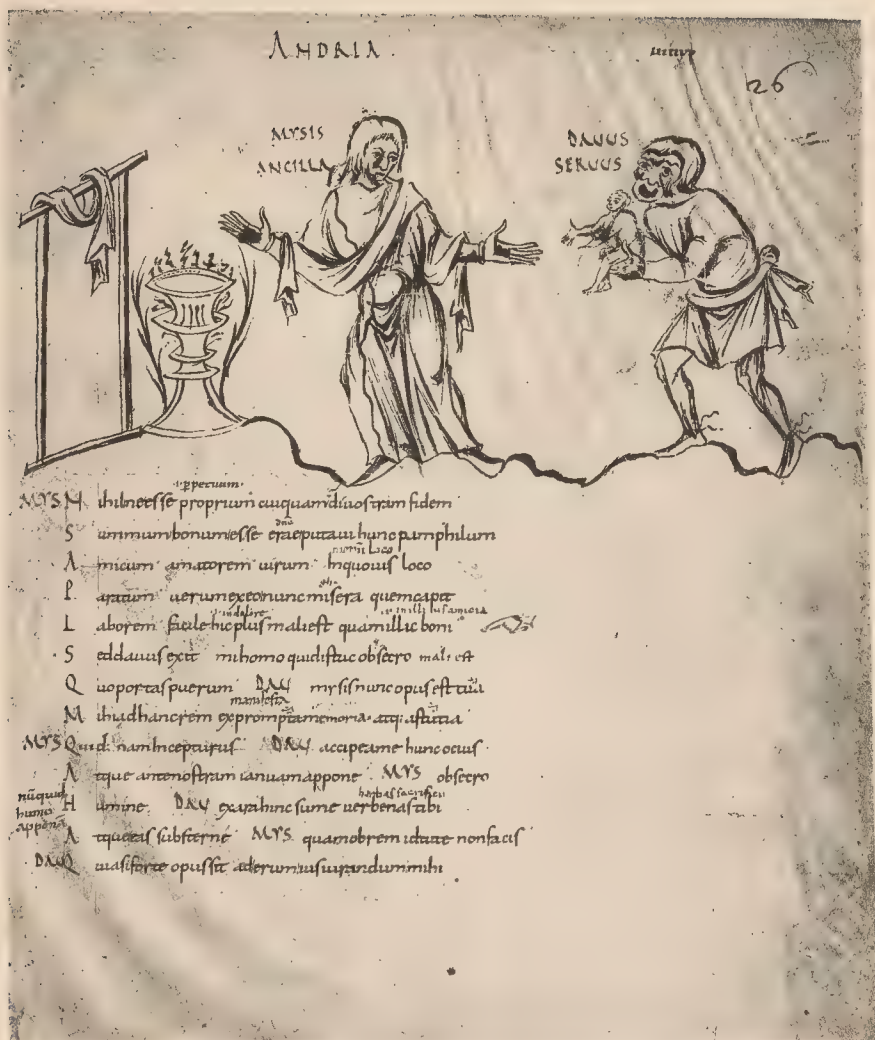 ANDRIA
26
MYSIS
ANCILLA
DAUUS
SERUUS
p̄petuum
MYS Nihilneesse proprium cuiquam diuostram fidem
Summum bonum esse eraeputaui hunc pamphilum
Amicum amatorem uirum Inquouis loco
Paratum uerum exeo nunc misera quem capit
Laborem facile hic plus mali est quam illic boni
Sed dauus exit mi homo quid istuc obsecro mali est
Quo portas puerum DAU mysis nunc opus est tua
manifesta
Mihi ad hanc rem exprompta memoria atq; astutia
MYS Quid nam Incepturus DAU accipe a me hunc ocius
Atque ante nostram ianuam appone MYS obsecro
nūquid humo apponā
herbas sacrificii
Humine DAU ex ara hinc sume uerbenas tibi
Atque eas substerne MYS quam obrem id tute non facis
DAU Quasi forte opus sit ad erum iusiurandum mihi